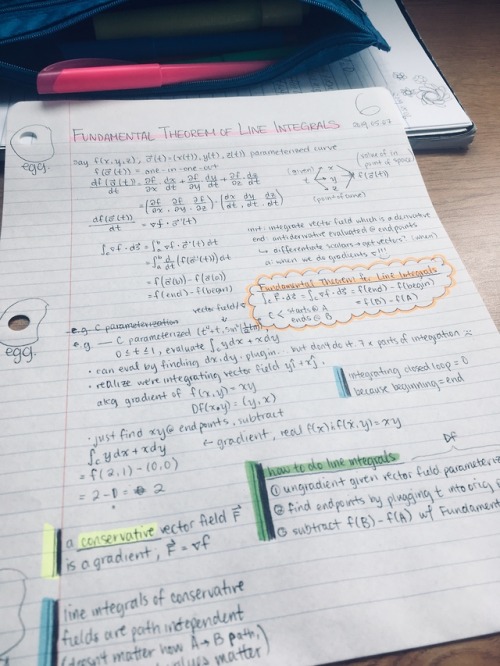 6
2019.05.07
FUNDAMENTAL THEOREM OF LINE INTEGRALS
egg.
say f(x,y,z), c⃗(t)=(x(t), y(t), z(t)) parameterized curve
f(c⃗(t)) = one-in-one-out
df(c⃗(t)) = ∂f/∂x dx/dt + ∂f/∂y dy/dt + ∂f/∂z dz/dt
= (∂f/∂x, ∂f/∂y, ∂f/∂z) · (dx/dt, dy/dt, dz/dt)
df(c⃗(t))/dt = ∇f · c⃗'(t)
(given) t x y z f(c⃗(t))
(value of in point of space)
(point of time)
∫c ∇f · ds⃗ = ∫ₐᵇ ∇f · c⃗'(t) dt
= ∫ₐᵇ d/dt (f(c⃗(t))) dt
= f(c⃗(b)) - f(c⃗(a))
= f(end) - f(begin)
int: integrate vector field which is a derivative
end: antiderivative evaluated @ endpoints
↳ differentiate scalars → get vectors? (when)
a: when we do gradients
Fundamental Theorem for Line Integrals
∫c F · ds = ∫c ∇f · ds = f(end) - f(begin)
C < starts @ A
ends @ B
= f(B) - f(A)
vector field
e.g. C parameterization
egg.
e.g. C parameterized
0 ≤ t ≤ 1, evaluate ∫c ydx + xdy
· can eval by finding dx, dy, plug in... but don't do it. 7x parts of integration
· realize we're integrating vector field yî + xĵ.
aka gradient of f(x,y) = xy
Df(x,y) = (y, x)
integrating closed loop = 0
because beginning = end
· just find xy @ endpoints, subtract
← gradient, real f(x) is f(x,y) = xy
∫c ydx + xdy
= f(2,1) - (0,0)
= 2 - 0 = 2
Df
how to do line integrals
① ungradient given vector field parameteriz
② find endpoints by plugging t into orig
③ subtract f(B) - f(A) w/ Fundamen
a conservative vector field F⃗
is a gradient, F⃗ = ∇f
line integrals of conservative
fields are path independent
(doesn't matter how A → B path,
values matter)